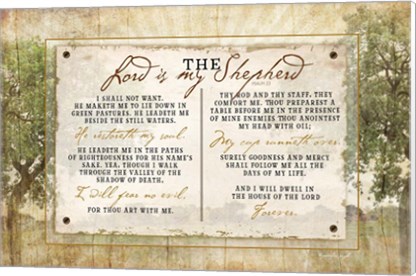 THE
Lord is my Shepherd
I SHALL NOT WANT.
HE MAKETH ME TO LIE DOWN IN
GREEN PASTURES. HE LEADETH ME
BESIDE THE STILL WATERS.
He restoreth my soul.
HE LEADETH ME IN THE PATHS
OF RIGHTEOUSNESS FOR HIS NAME'S
SAKE. YEA, THOUGH I WALK
THROUGH THE VALLEY OF THE
SHADOW OF DEATH,
I will fear no evil,
FOR THOU ART WITH ME.
THY ROD AND THY STAFF, THEY
COMFORT ME. THOU PREPAREST A
TABLE BEFORE ME IN THE PRESENCE
OF MINE ENEMIES THOU ANOINTEST
MY HEAD WITH OIL;
My cup runneth over.
SURELY GOODNESS AND MERCY
SHALL FOLLOW ME ALL THE
DAYS OF MY LIFE.
AND I WILL DWELL IN
THE HOUSE OF THE LORD
Forever.